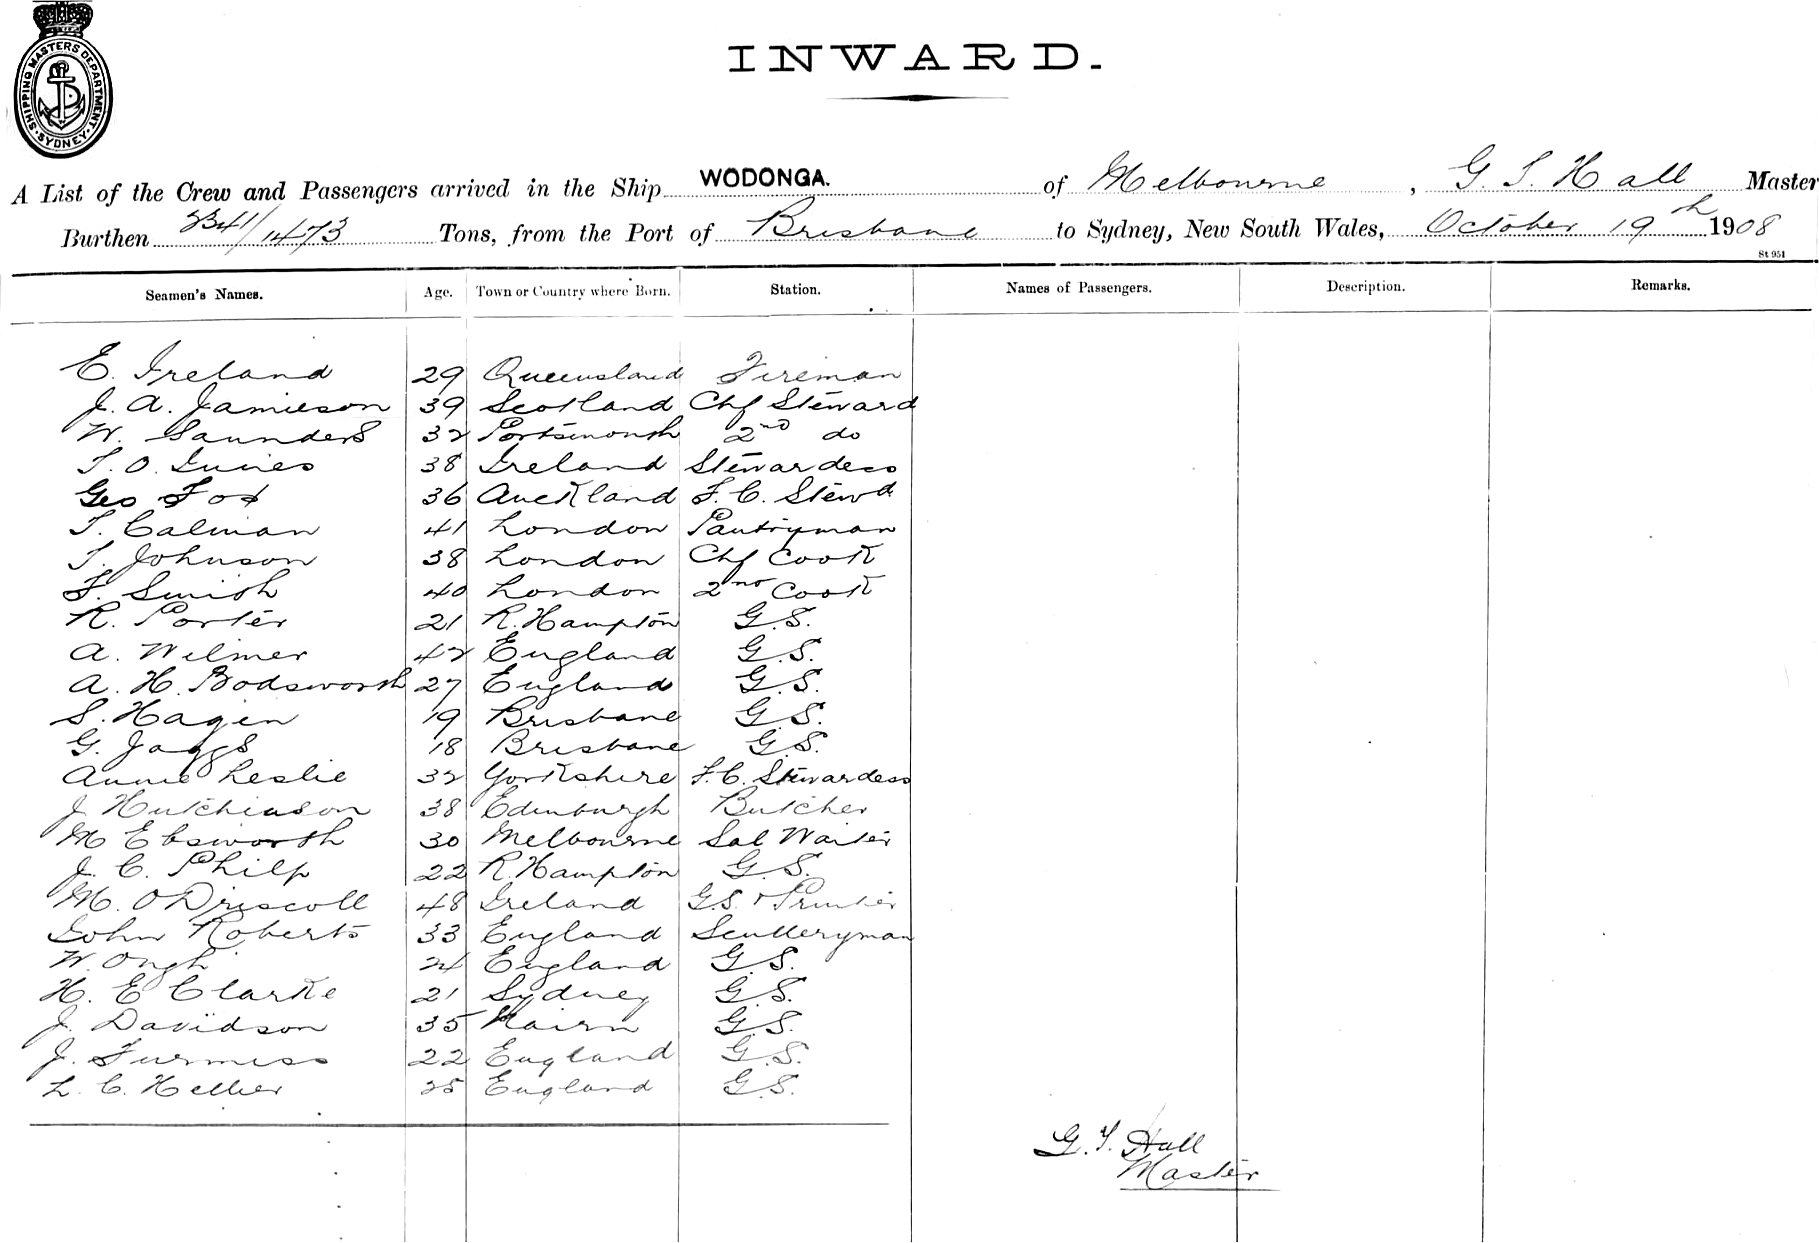 SHIPPING MASTERS DEPARTMENT · SYDNEY ·
INWARD.
A List of the Crew and Passengers arrived in the Ship WODONGA. of Melbourne, G. S. Hall Master
Burthen 2341/1473 Tons, from the Port of Brisbane to Sydney, New South Wales, October 19th 1908
St 951
Seamen's Names. Age. Town or Country where Born. Station. Names of Passengers. Description. Remarks.
E. Ireland 29 Queensland Fireman
J. A. Jamieson 39 Scotland Chf Steward
W. Saunders 32 Portsmouth 2nd do
38 Ireland Stewardess
Geo Fox 36 Auckland F. C. Stewd
T. Calman 41 London Pantryman
T. Johnson 38 London Chf Cook
F. Smith 40 London 2nd Cook
R. Porter 21 R. Hampton G.S.
A. Wilmer 42 England G.S.
A. H. Bodsworth 27 England G.S.
S. Hagen 19 Brisbane G.S.
G. Jaggs 18 Brisbane G.S.
Annie Leslie 32 Yorkshire F. C. Stewardess
J Hutchinson 38 Edinburgh Butcher
M Ebsworth 30 Melbourne Sal Waiter
J. C. Philp 22 R. Hampton G.S.
M. O'Driscoll 48 Ireland G.S. & Printer
John Roberts 33 England Sculleryman
W. Ongh 24 England G.S.
H. E Clarke 21 Sydney G.S.
J. Davidson 35 Nairn G.S.
J. Furniss 22 England G.S.
L. C. Hellier 25 England G.S.
G. T. Hall
Master